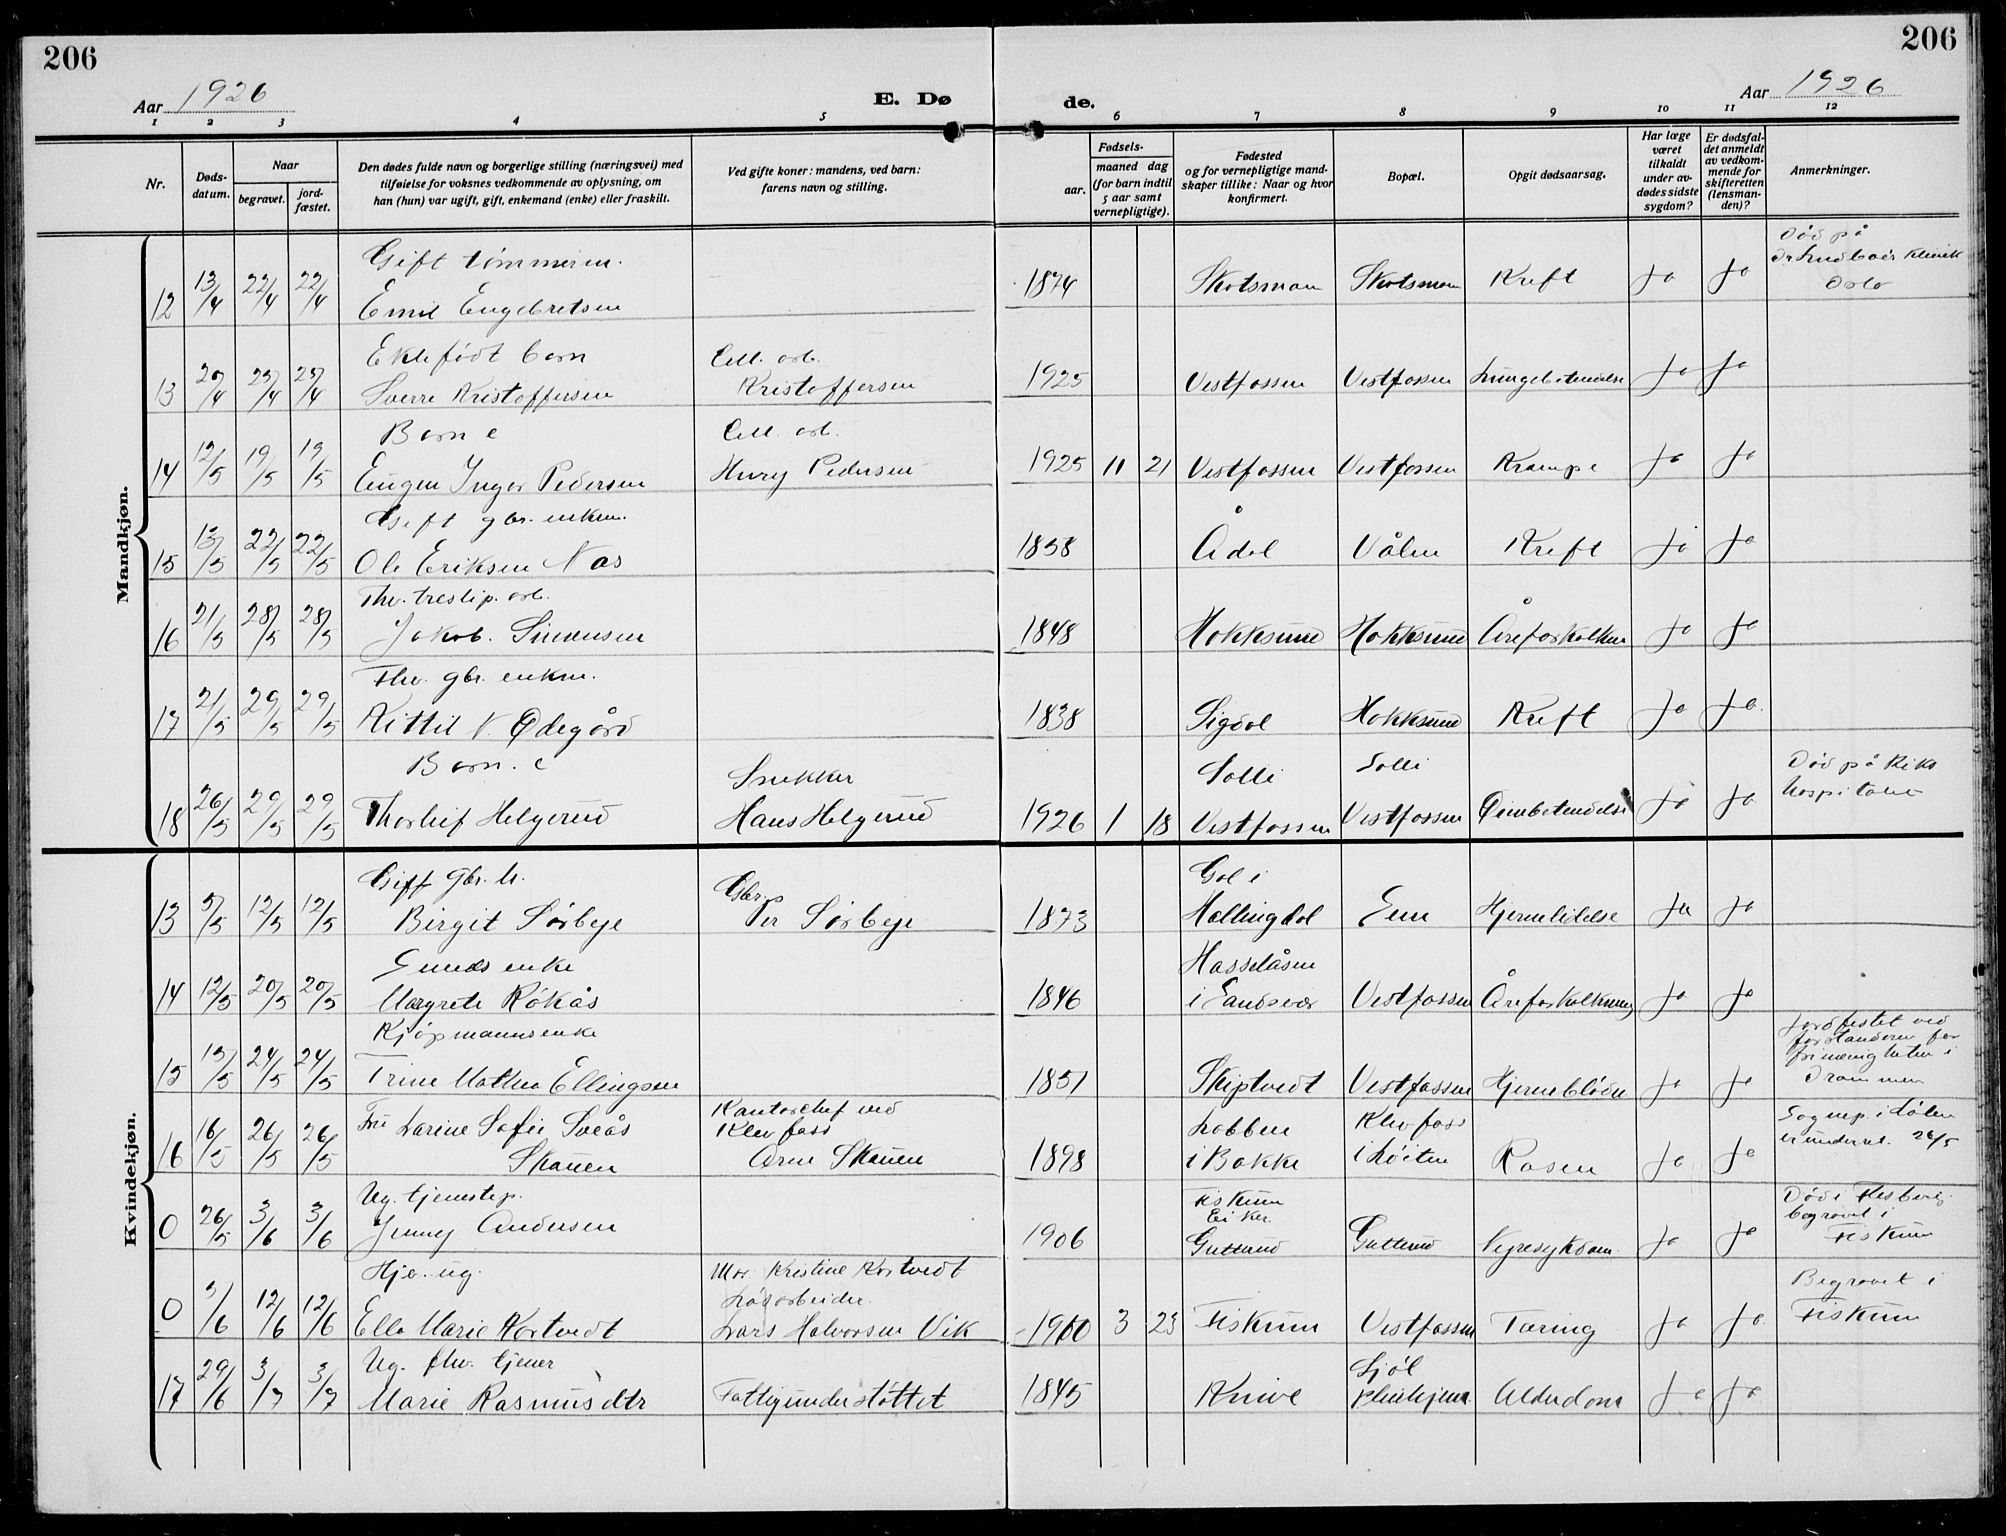 206
206
Aar 1926
E. Dø
de.
Aar 1926
1 2 3 4 5 6 7 8 9 10 11 12
Nr.
Døds-
datum.
Naar
begravet.
jord-
fæstet.
Den dødes fulde navn og borgerlige stilling (næringsvei) med
tilføielse for voksnes vedkommende av oplysning, om
han (hun) var ugift, gift, enkemand (enke) eller fraskilt.
Ved gifte koner: mandens, ved barn:
farens navn og stilling.
Fødsels-
aar.
maaned dag
(for barn indtil
5 aar samt
vernepligtige).
Fødested
og for vernepligtige mand-
skaper tillike: Naar og hvor
konfirmert.
Bopæl.
Opgit dødsaarsag.
Har læge
været
tilkaldt
under av-
dødes sidste
sygdom?
Er dødsfal-
det anmeldt
av vedkom-
mende for
skifteretten
(lensman-
den)?
Anmerkninger.
Mandkjøn.
12 13/4 22/4 22/4 Gift tømmerm.
Emil Engebretsen 1874 Skotsmoen Skotsmoen Kreft Ja Ja Død på
Klinik
Oslo
13 20/4 25/4 25/4 Ektefødt barn
Sverre Kristoffersen Cell. arb.
Kristoffersen 1925 Vestfossen Vestfossen Lungebetendelse Ja Ja
14 12/5 19/5 19/5 Barn e
Eugen Inger Pedersen Cell. arb.
Henry Pedersen 1925 11 21 Vestfossen Vestfossen Krampe Ja Ja
15 13/5 22/5 22/5 Gift gbr. enkem.
Ole Eriksen Nas 1838 Ådal Vålen Kreft Ja Ja
16 21/5 28/5 28/5 Fhv. treslip. arb.
Jakob Simensen 1848 Hokksund Hokksund Åreforkalkn Ja Ja
17 21/5 29/5 29/5 Fhv. gbr. enkm.
Kittil N. Ødegård 1838 Sigdal Hokksund Kreft Ja Ja
18 26/5 29/5 29/5 Barn. e
Thorleif Helgerud Snekker
Hans Helgerud 1926 1 18 Solli
Vestfossen Solli
Vestfossen Ørenbetendelse Ja Ja Død på Riks
hospitalet
Kvindekjøn.
13 5/5 12/5 12/5 Gift gbr. h.
Birgit Sørbye Gbr.
Per Sørbye 1873 Gol i
Hallingdal Eien Hjernelidelse Ja Ja
14 12/5 20/5 20/5 enke
Margrete Rökås 1846 Hasselåsen
i Sandsvær Vestfossen Åreforkalkning Ja Ja
15 15/5 24/5 24/5 Kjøpmannsenke
Trine Mathea Ellingsen 1851 Skiptvedt Vestfossen Hjerneblødn Ja Ja Jordfestet ved
forstanderen for
frimenigheten i
Drammen
16 16/5 26/5 26/5 Fru Larine Sofie Sveås
Skauen Kontorchef ved
Klevfoss
Arne Skauen 1898 Lobben
i Bakke Klevfoss
i Løiten Rosen Ja Ja Sognep. i Løten
er underret. 26/5
0 26/5 3/6 3/6 Ug. tjenestep.
Jenny Andersen 1906 Fiskum
Eiker.
Gutterud Gutterud Nyresykdom Ja Ja Død i Flesberg
begravet i
Fiskum
0 5/6 12/6 12/6 Hje. ug.
Ella Marie Kortvedt Mor Kristine Kortvedt
Løsarbeider.
Lars Halvorsen Vik 1910 3 23 Fiskum Vestfossen Tæring Ja Ja Begravet i
Fiskum
17 29/6 3/7 3/7 Ug. fhv. tjener
Marie Rasmusdtr Fattigunderstøttet 1845 Knive Sjøl
pleiehjem Alderdom Ja Ja